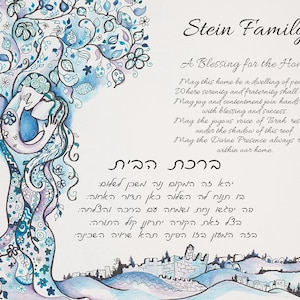 Stein Family
A Blessing for the Home
May this home be a dwelling of pe
Where serenity and fraternity shall
May joy and contentment join hand
with blessing and success
May the joyous voice of Torah res
under the shadow of this roof
May the Divine Presence always r
within our home.
ברכת הבית
יהא זה המקום נוה ומשכן לשלום.
בו תנוח לה השלוה כאן תשרה האחוה.
פה יפגשו גיל ושמחה עם ברכה והצלחה.
בצל זאת הקורה יתרונן קול התורה.
בזה המעון בזו הפינה תהא שרויה השכינה.